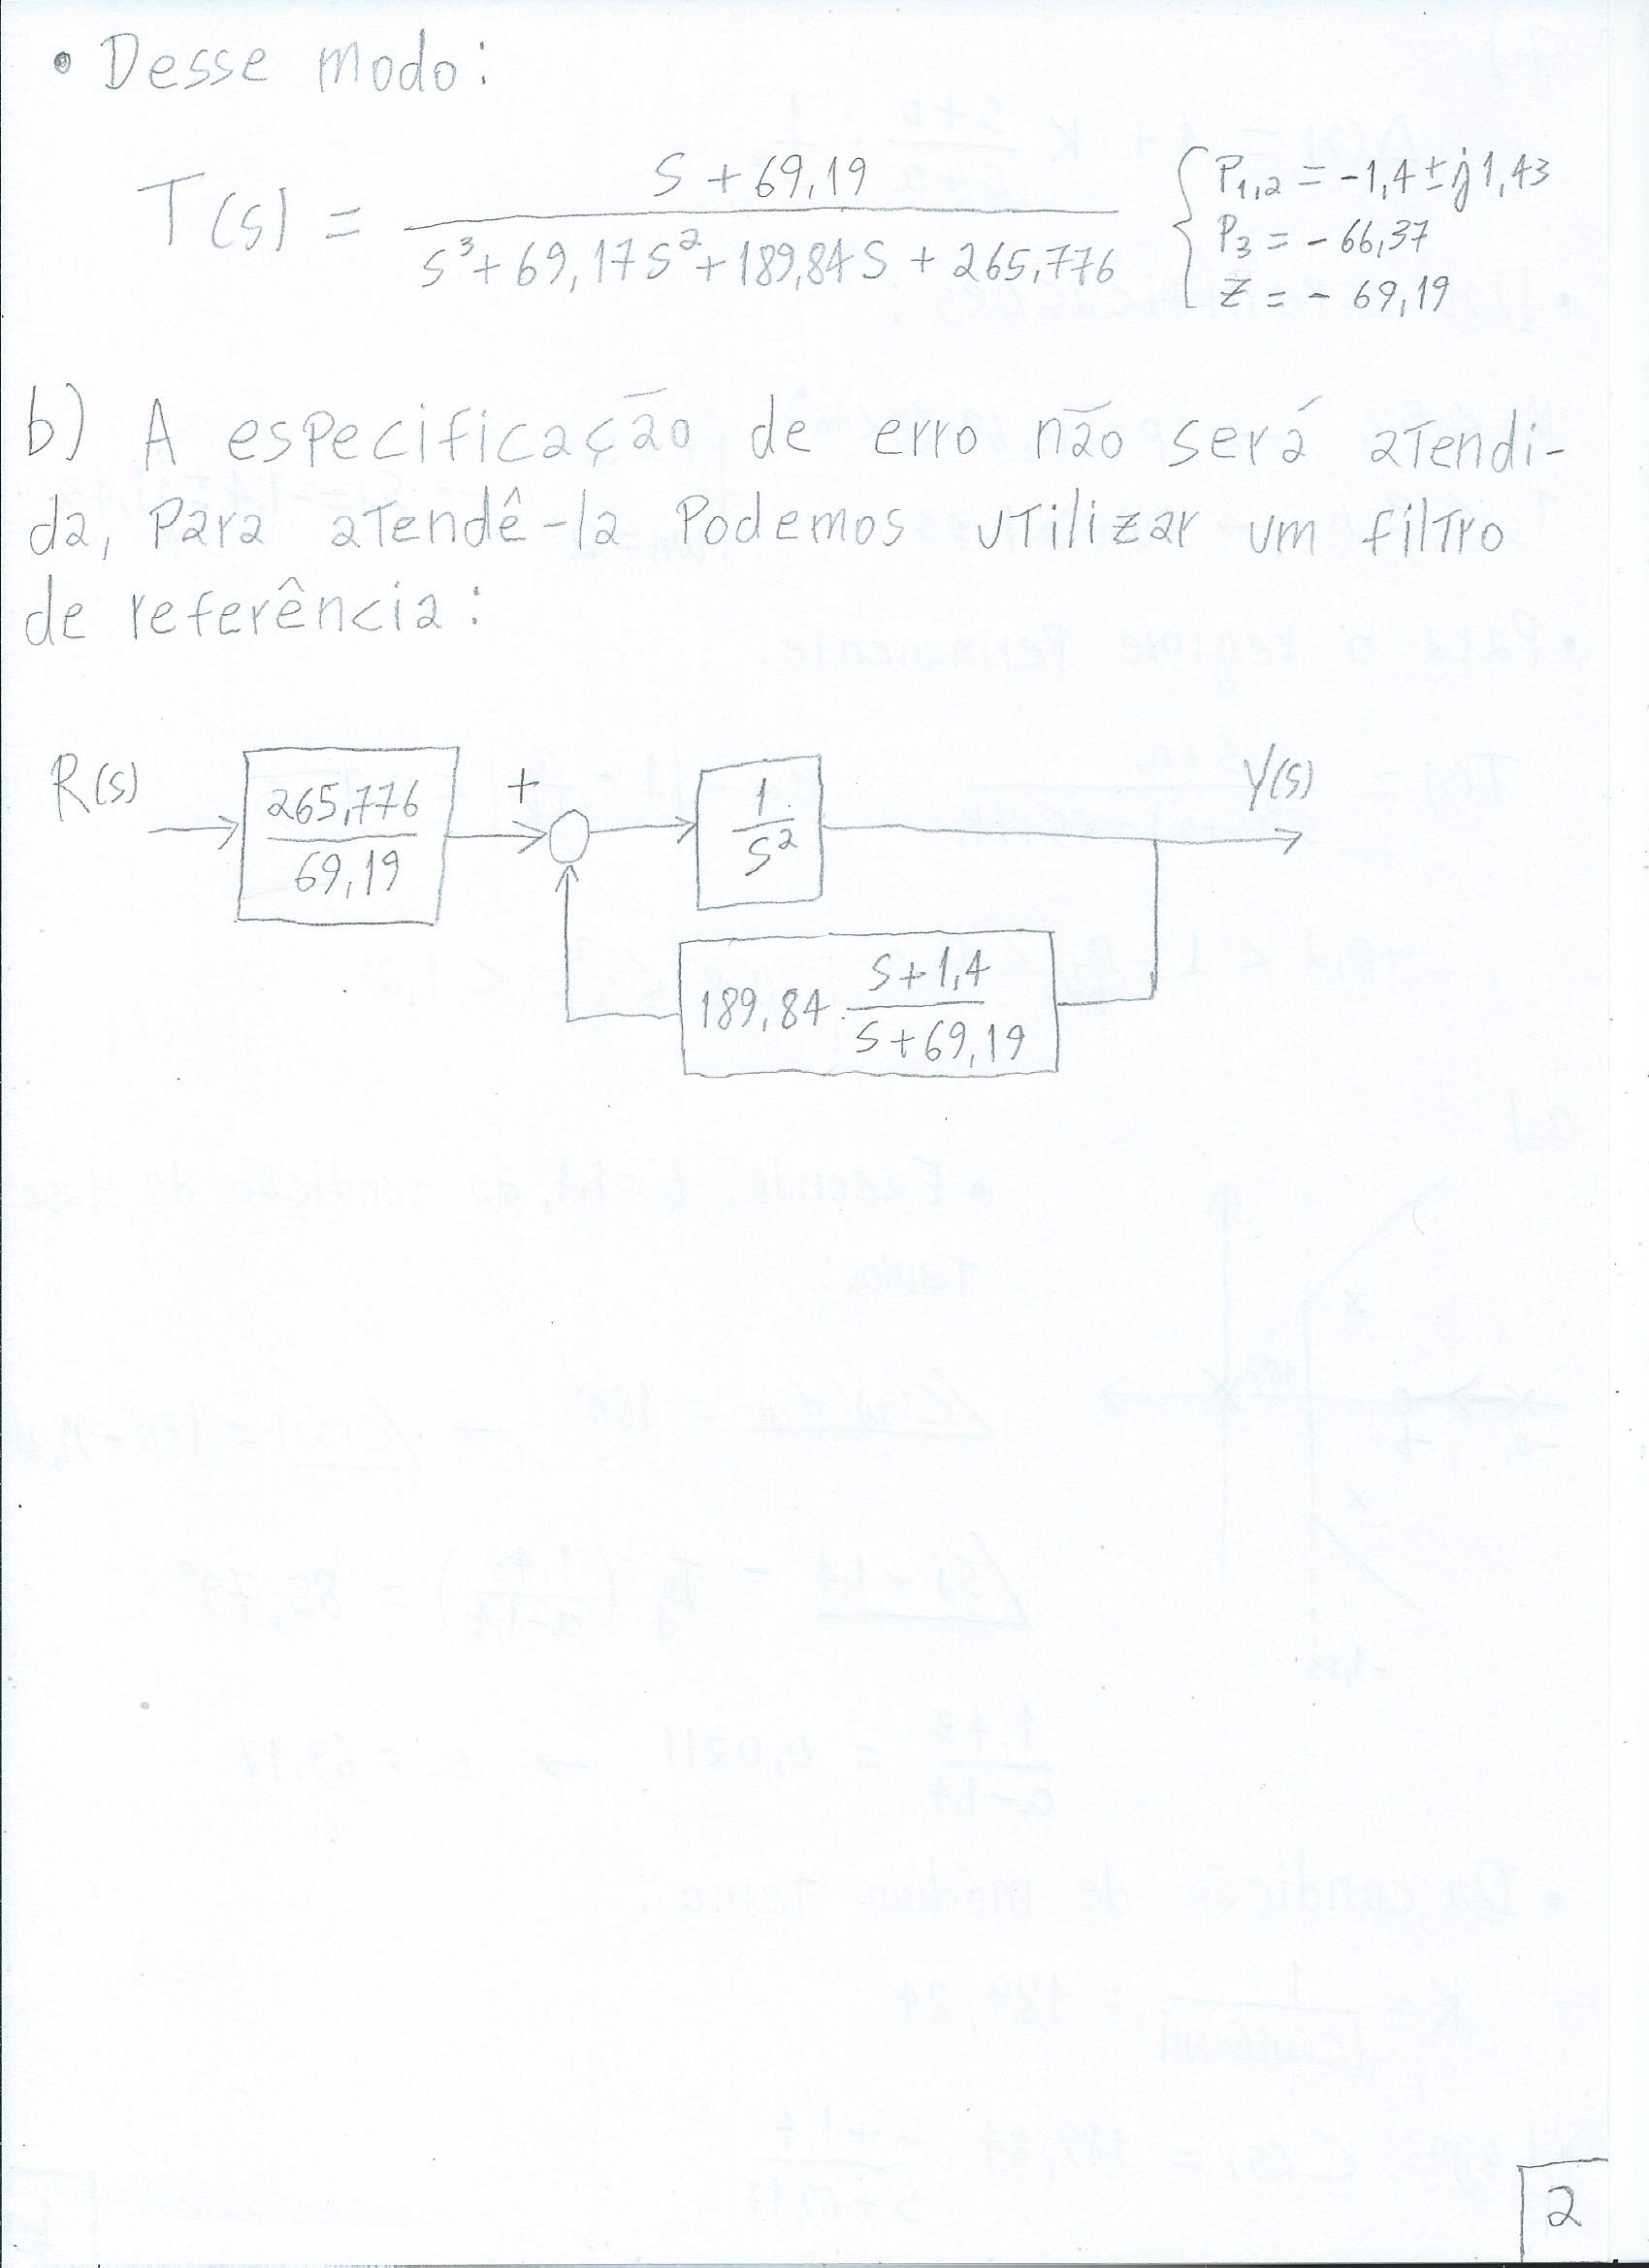 • Desse modo:
T(s) = (s + 69,19) / (s³ + 69,17s² + 189,84s + 265,776) { P₁,₂ = -1,4 ± j1,43
P₃ = - 66,37
Z = - 69,19
b) A especificação de erro não será atendi-
da, Para atendê-la Podemos utilizar um filtro
de referência:
R(s) 265,776 / 69,19 + 1 / s² Y(s)
189,84 . (s + 1,4) / (s + 69,19)
2